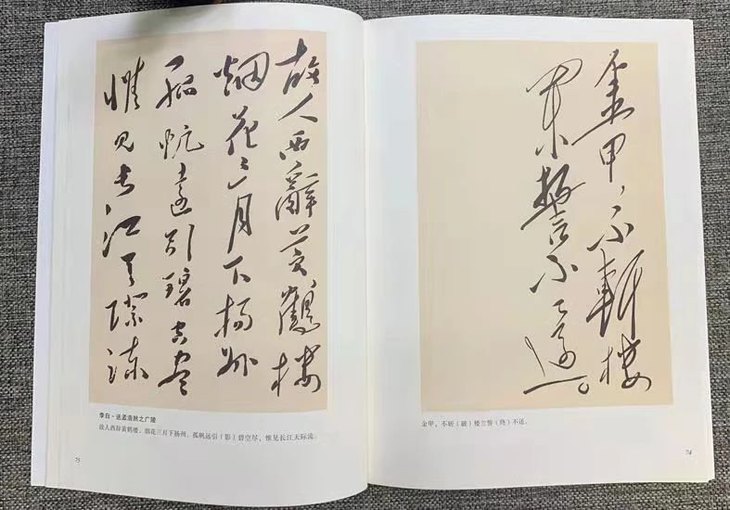 金甲，不斬楼
蘭誓不还。
金甲，不斩（破）楼兰誓（终）不还。
74
故人西辭黄鶴楼
烟花三月下揚州
孤帆遠引碧空尽
惟見長江天際流
李白·送孟浩然之广陵
故人西辞黄鹤楼，烟花三月下扬州。孤帆远引（影）碧空尽，惟见长江天际流。
75